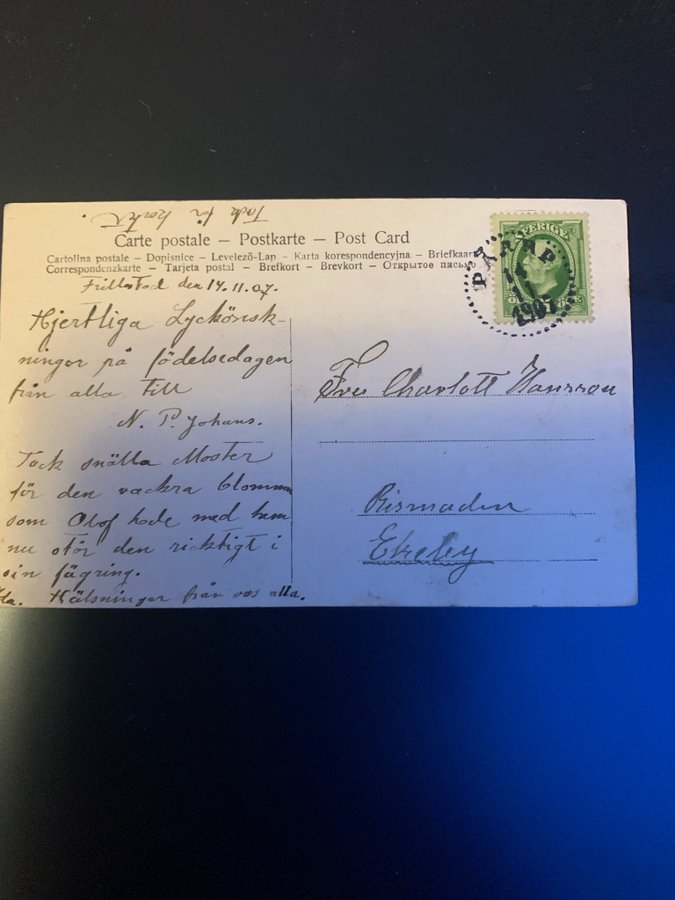 Tack för kortet.
Carte postale – Postkarte – Post Card
Cartolina postale – Dopisnice – Levelező-Lap – Karta korespondencyjna – Briefkaart
Correspondenzkarte – Tarjeta postal – Brefkort – Brevkort – Открытое письмо
SVERIGE
PÅARP
14
11
1907
Frillstad den 14.11.07.
Hjertliga Lyckönsk-
ningar på födelsedagen
från alla till
N. P. Johans.
Tack snälla Moster
för den vackra blomman
som Olof hade med hem
nu står den ricktigt i
sin fägring.
Hälsningar från oss alla.
Fru Charlott Hansson
Rismaden
Ekeby